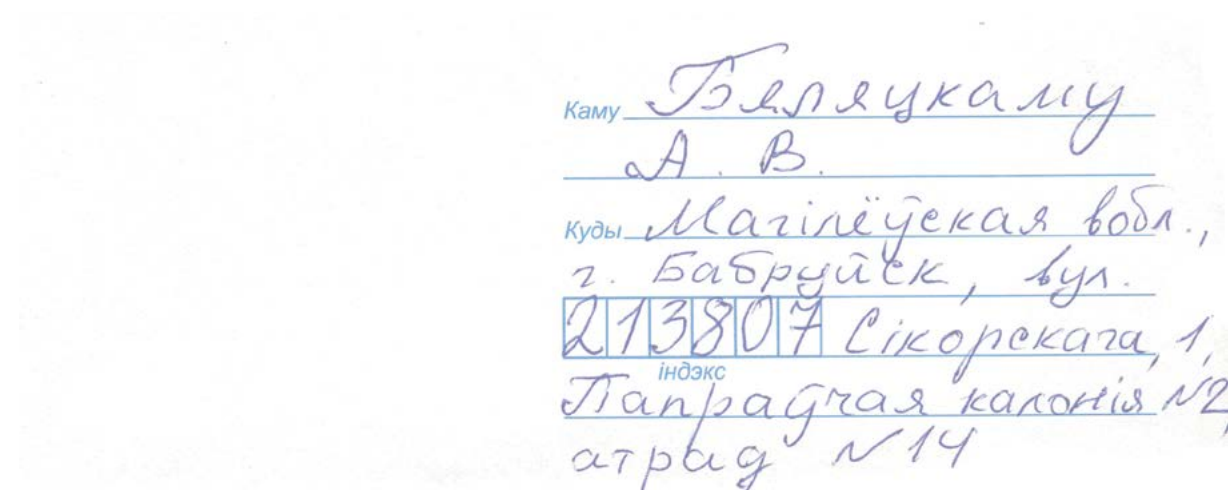 Каму Бяляцкаму
А. В.
Куды Магілёўская вобл.,
г. Бабруйск, вул.
213807 Сікорскага, 1,
індэкс
Папраўчая калонія №2,
атрад №14